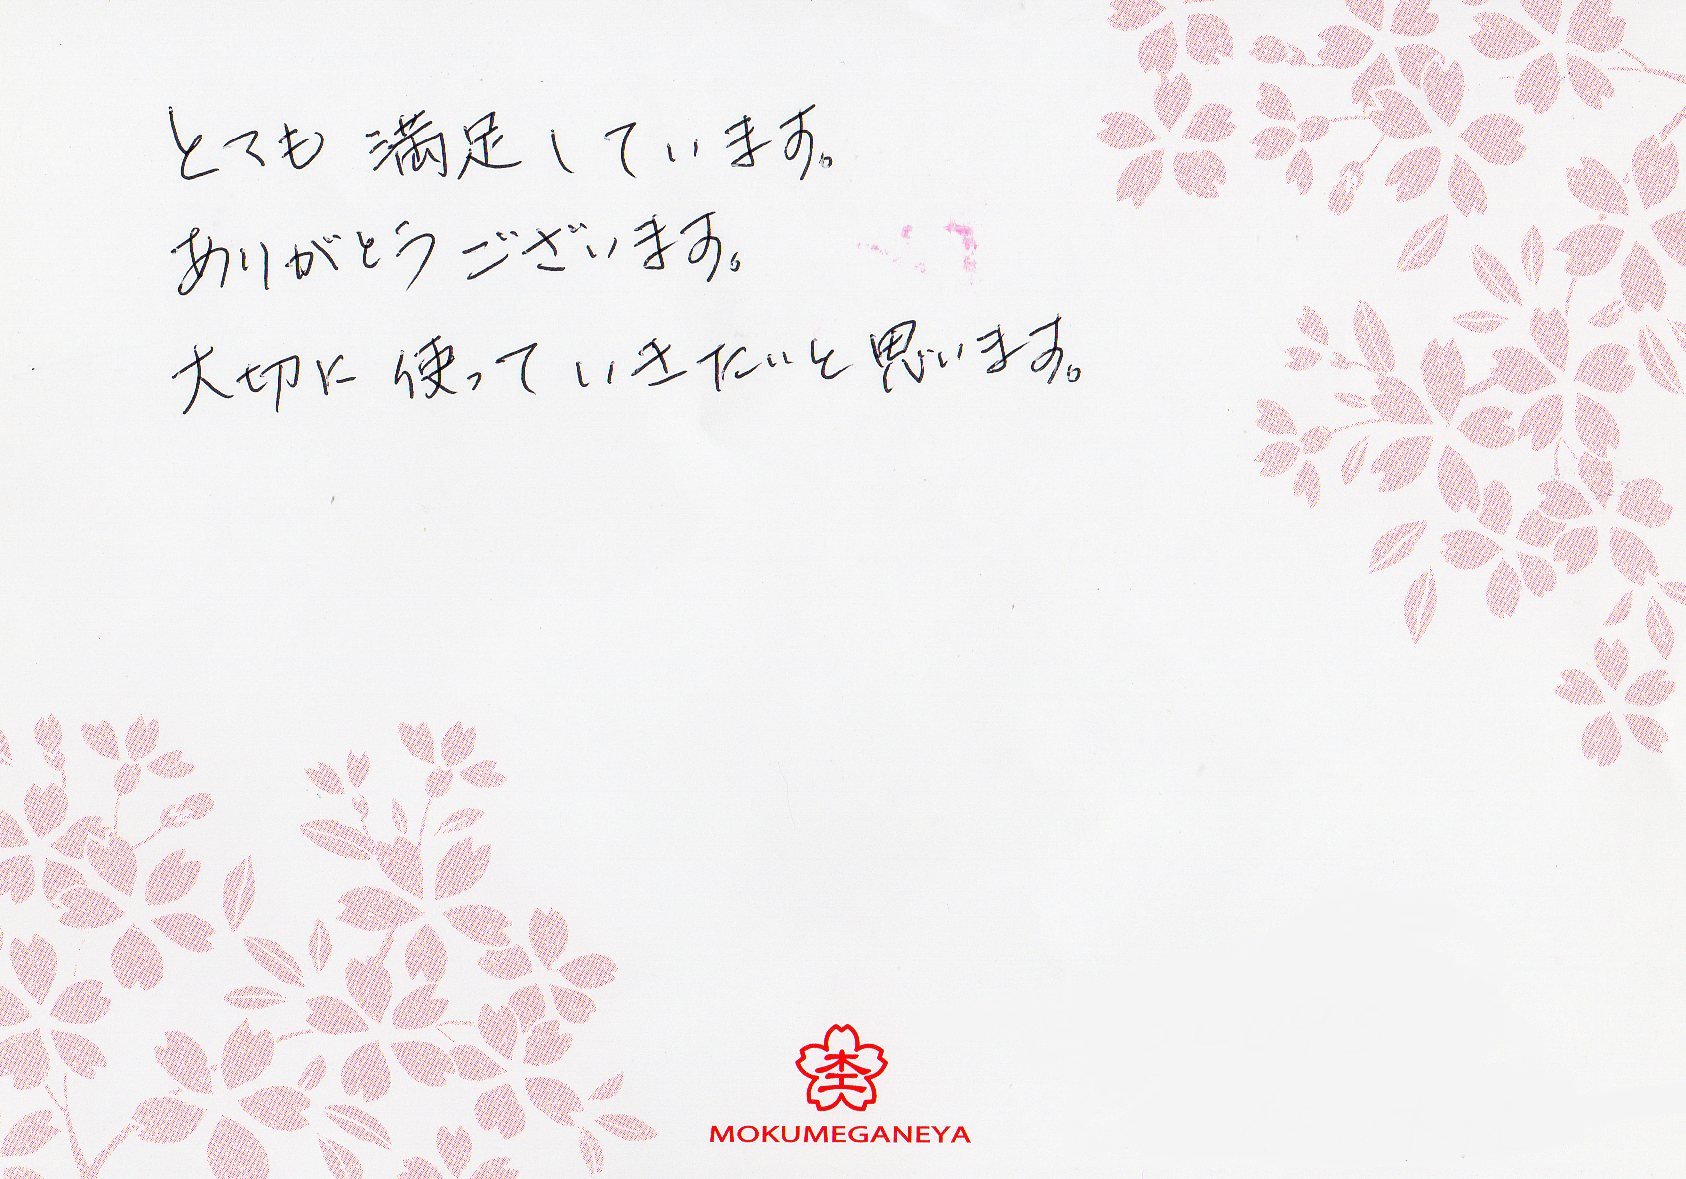 とても満足しています。
ありがとうございます。
大切に使っていきたいと思います。
杢
MOKUMEGANEYA